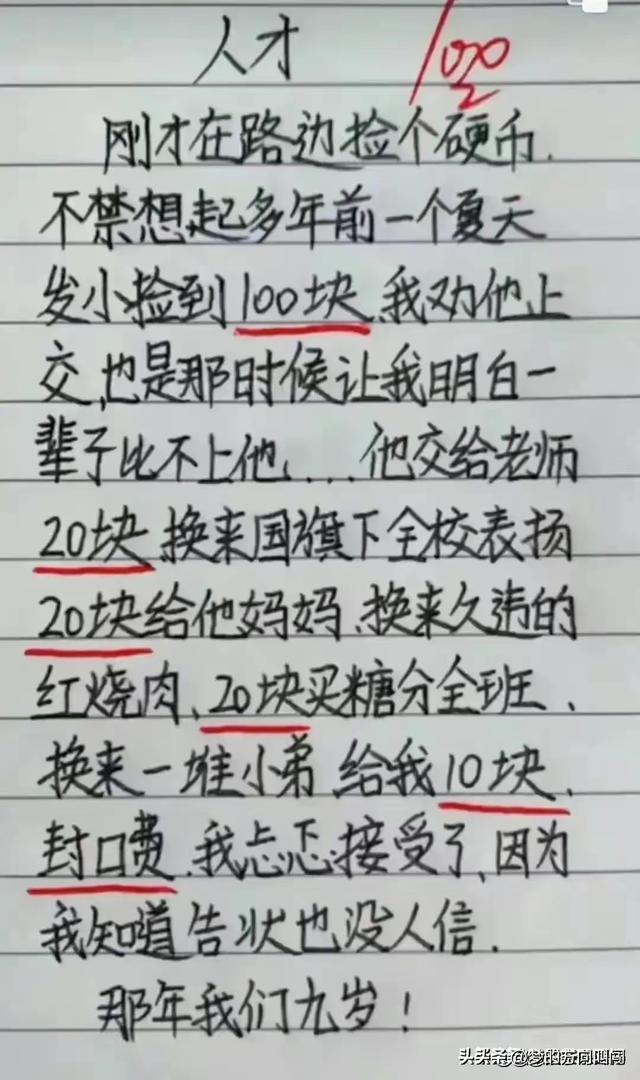 人才 100
刚才在路边捡个硬币.
不禁想起多年前一个夏天
发小捡到100块.我劝他上
交,也是那时候让我明白一
辈子比不上他....他交给老师
20块换来国旗下全校表扬
20块给他妈妈.换来久违的
红烧肉、20块买糖分全班.
换来一堆小弟给我10块.
封口费.我忐忑接受了,因为
我知道告状也没人信.
那年我们九岁!